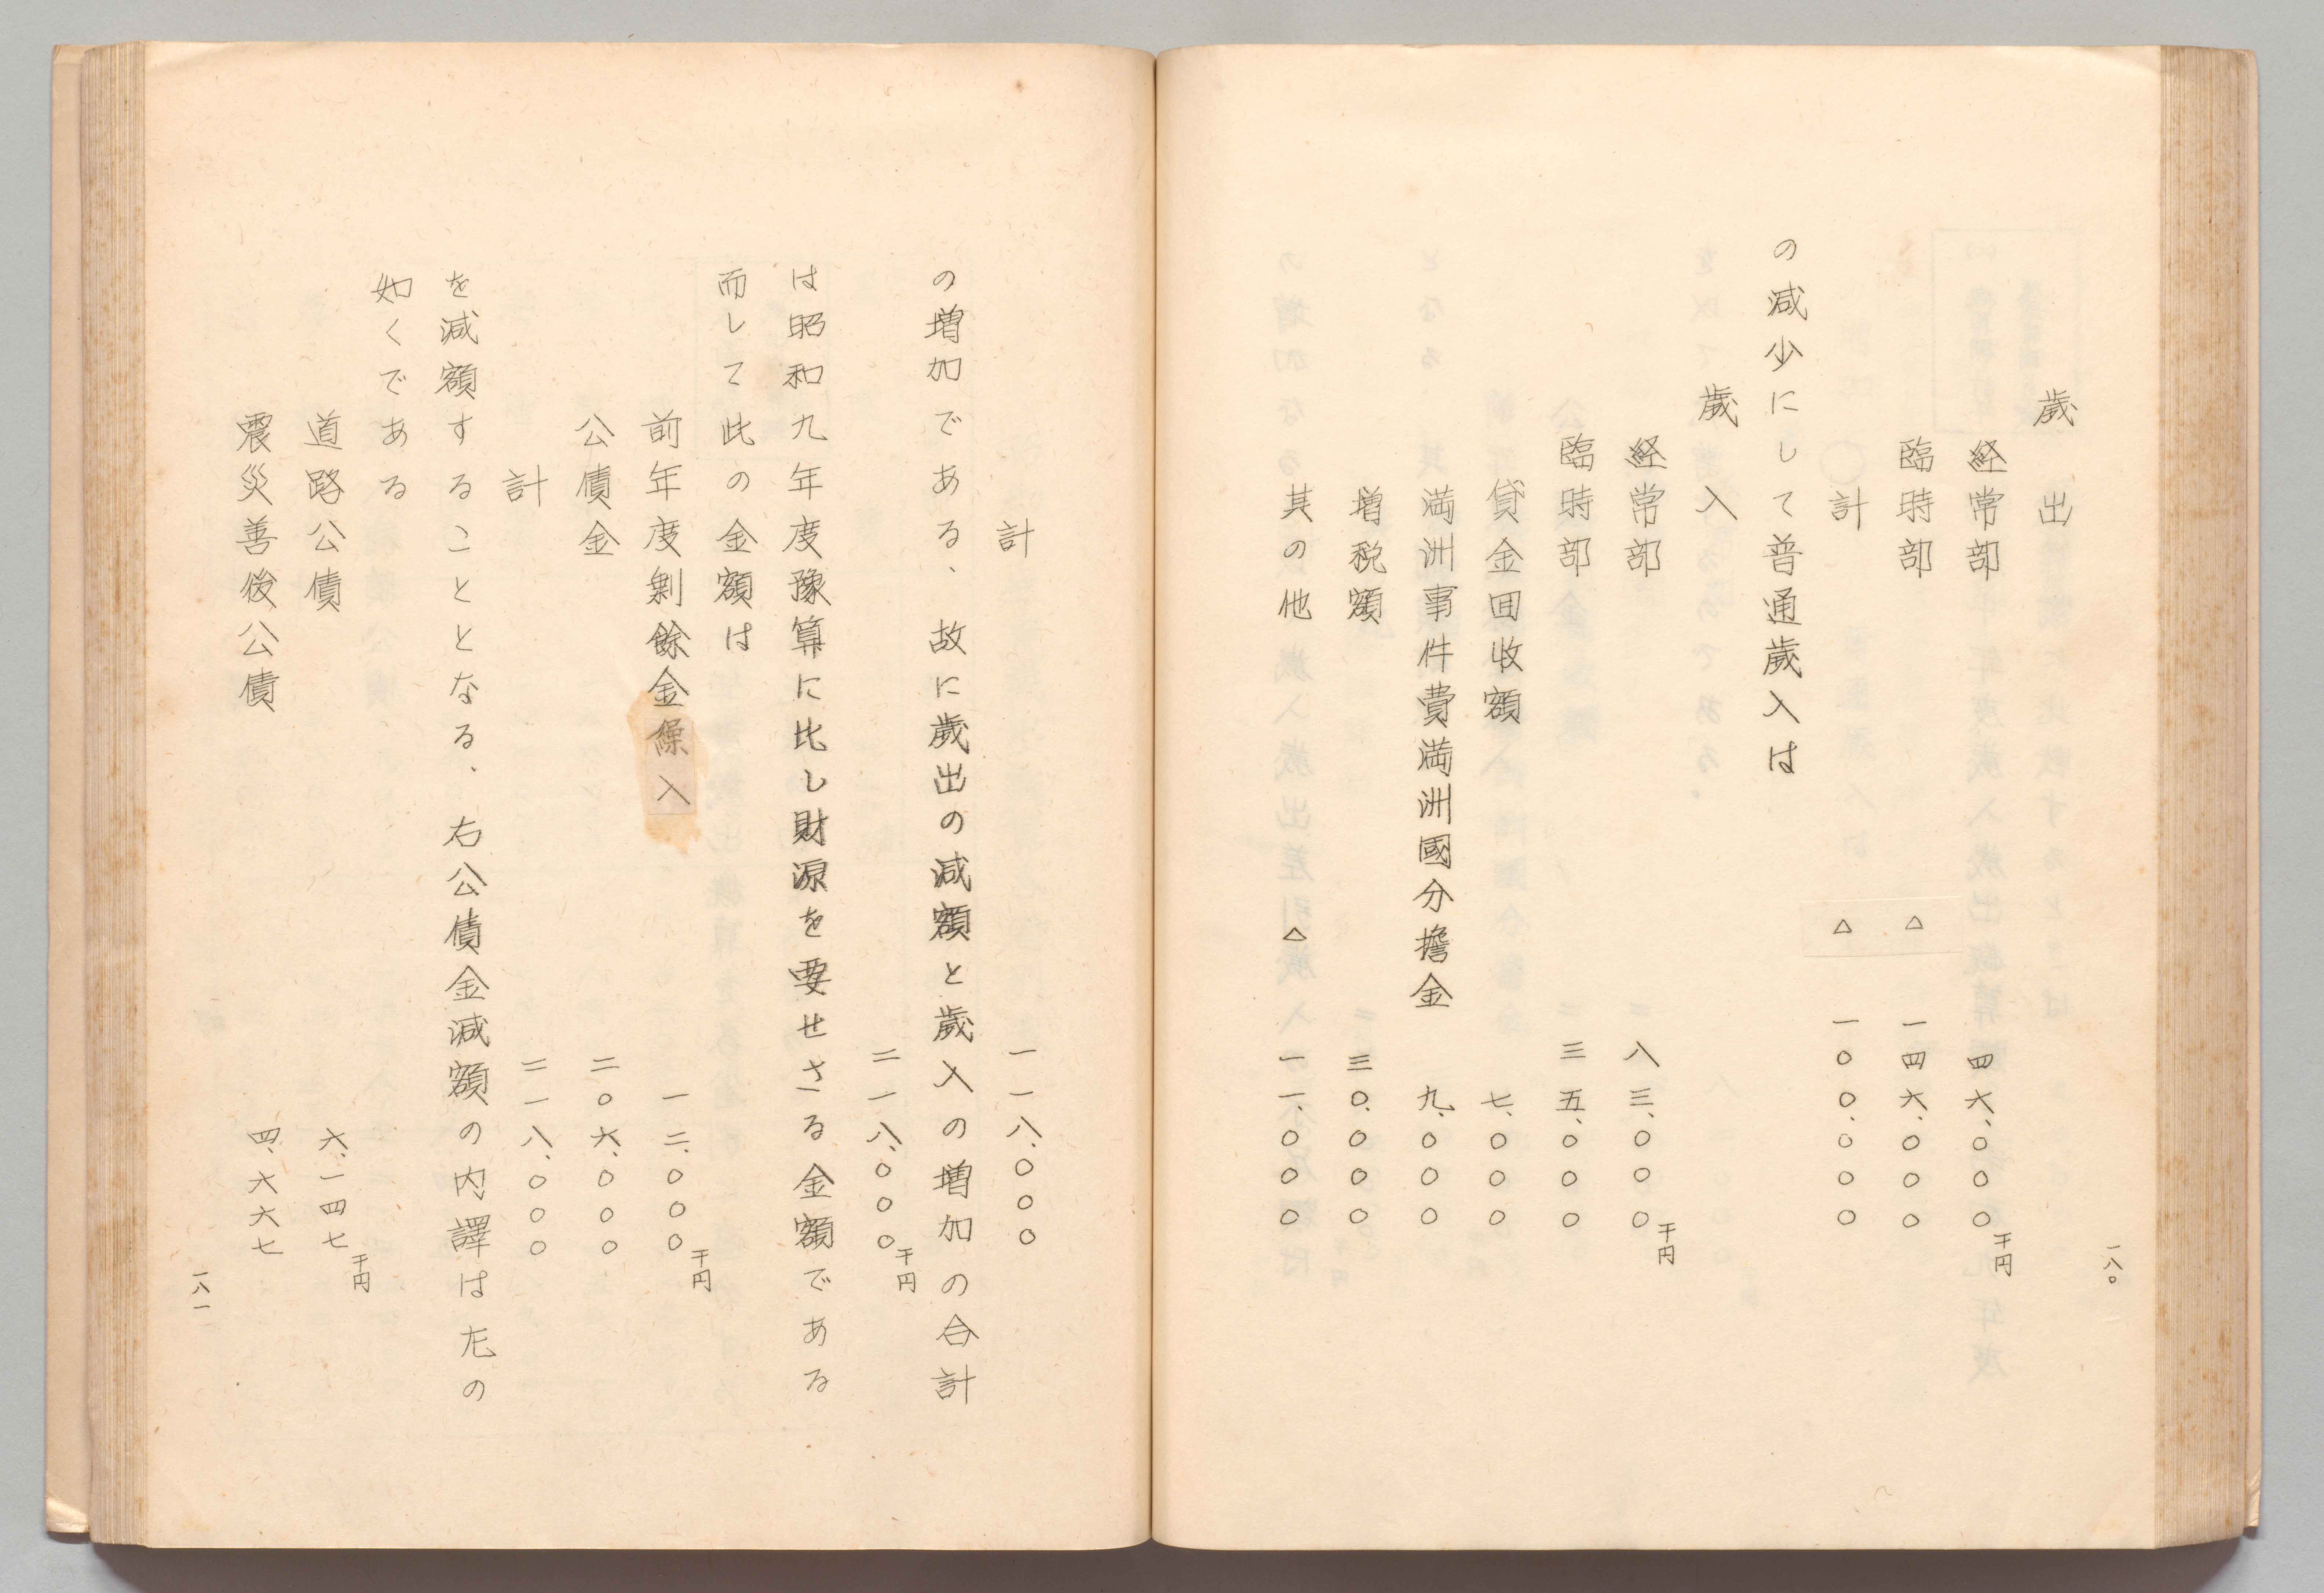 歳出
経常部 四六、〇〇〇千円
臨時部 △ 一四六、〇〇〇
計 △ 一〇〇、〇〇〇
の減少にして普通歳入は
歳入
経常部 八三、〇〇〇千円
臨時部 三五、〇〇〇
貸金回收額 七、〇〇〇
満洲事件費満洲國分擔金 九、〇〇〇
増税額 三〇、〇〇〇
其の他 △ 一一、〇〇〇
一八〇
計 一一八、〇〇〇
の増加である、故に歳出の減額と歳入の増加の合計
二一八、〇〇〇千円
は昭和九年度豫算に比し財源を要せさる金額である
而して此の金額は
前年度剰餘金繰入 一二、〇〇〇千円
公債金 二〇六、〇〇〇
計 二一八、〇〇〇
を減額することとなる、右公債金減額の内譯は左の
如くである
道路公債 六、一四七千円
震災善後公債 四、六六七
一八一